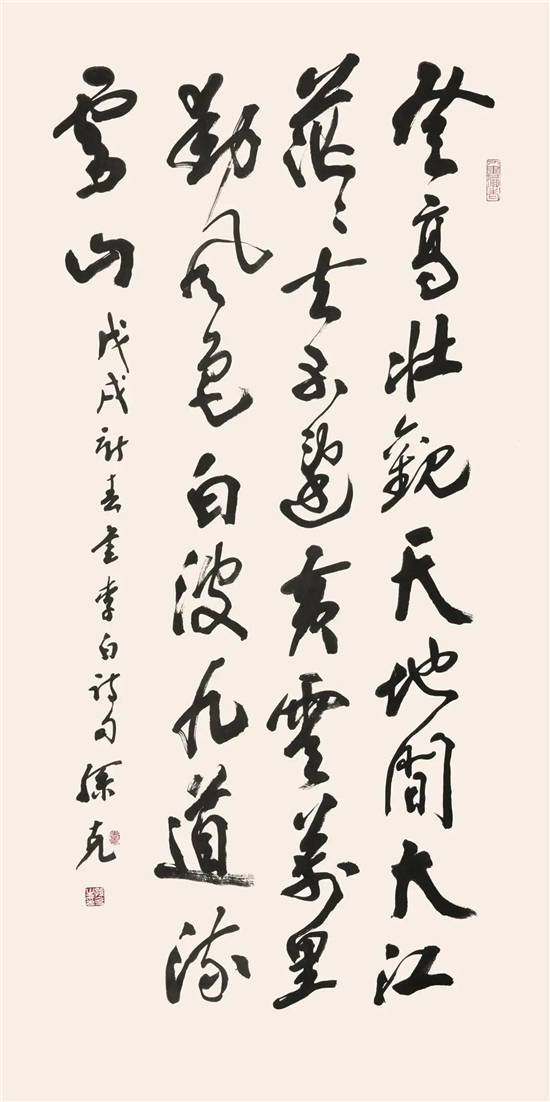 登高壮觀天地間大江
茫〻去不還黄雲萬里
動風色白波九道流
雪山
戊戌新春書李白詩句 孫克